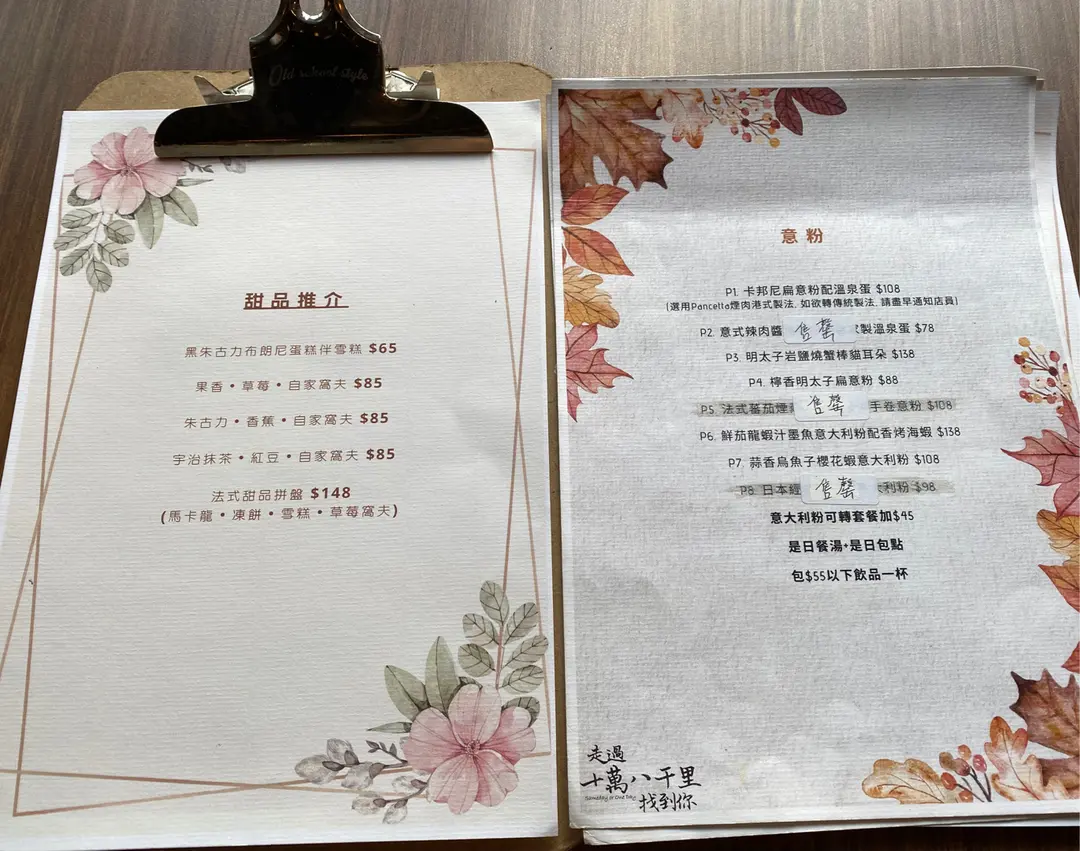 Old school style
甜品推介
黑朱古力布朗尼蛋糕伴雪糕 $65
果香•草莓•自家窩夫 $85
朱古力•香蕉•自家窩夫 $85
宇治抹茶•紅豆•自家窩夫 $85
法式甜品拼盤 $148
(馬卡龍•凍餅•雪糕•草莓窩夫)
意粉
P1. 卡邦尼扁意粉配溫泉蛋 $108
(選用Pancetta煙肉港式製法, 如欲轉傳統製法, 請盡早通知店員)
P2. 意式辣肉醬 售罄 製溫泉蛋 $78
P3. 明太子岩鹽燒蟹棒貓耳朵 $138
P4. 檸香明太子扁意粉 $88
P5. 法式蕃茄煙 售罄 手卷意粉 $108
P6. 鮮茄龍蝦汁墨魚意大利粉配香烤海蝦 $138
P7. 蒜香烏魚子櫻花蝦意大利粉 $108
P8. 日本經 售罄 大利粉 $98
意大利粉可轉套餐加$45
是日餐湯+是日包點
包$55以下飲品一杯
走過
十萬八千里
Someday or One Day
找到你